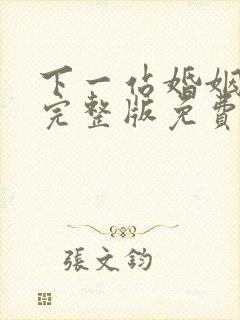 下一佔婚姻
完整版免費
張文鈞